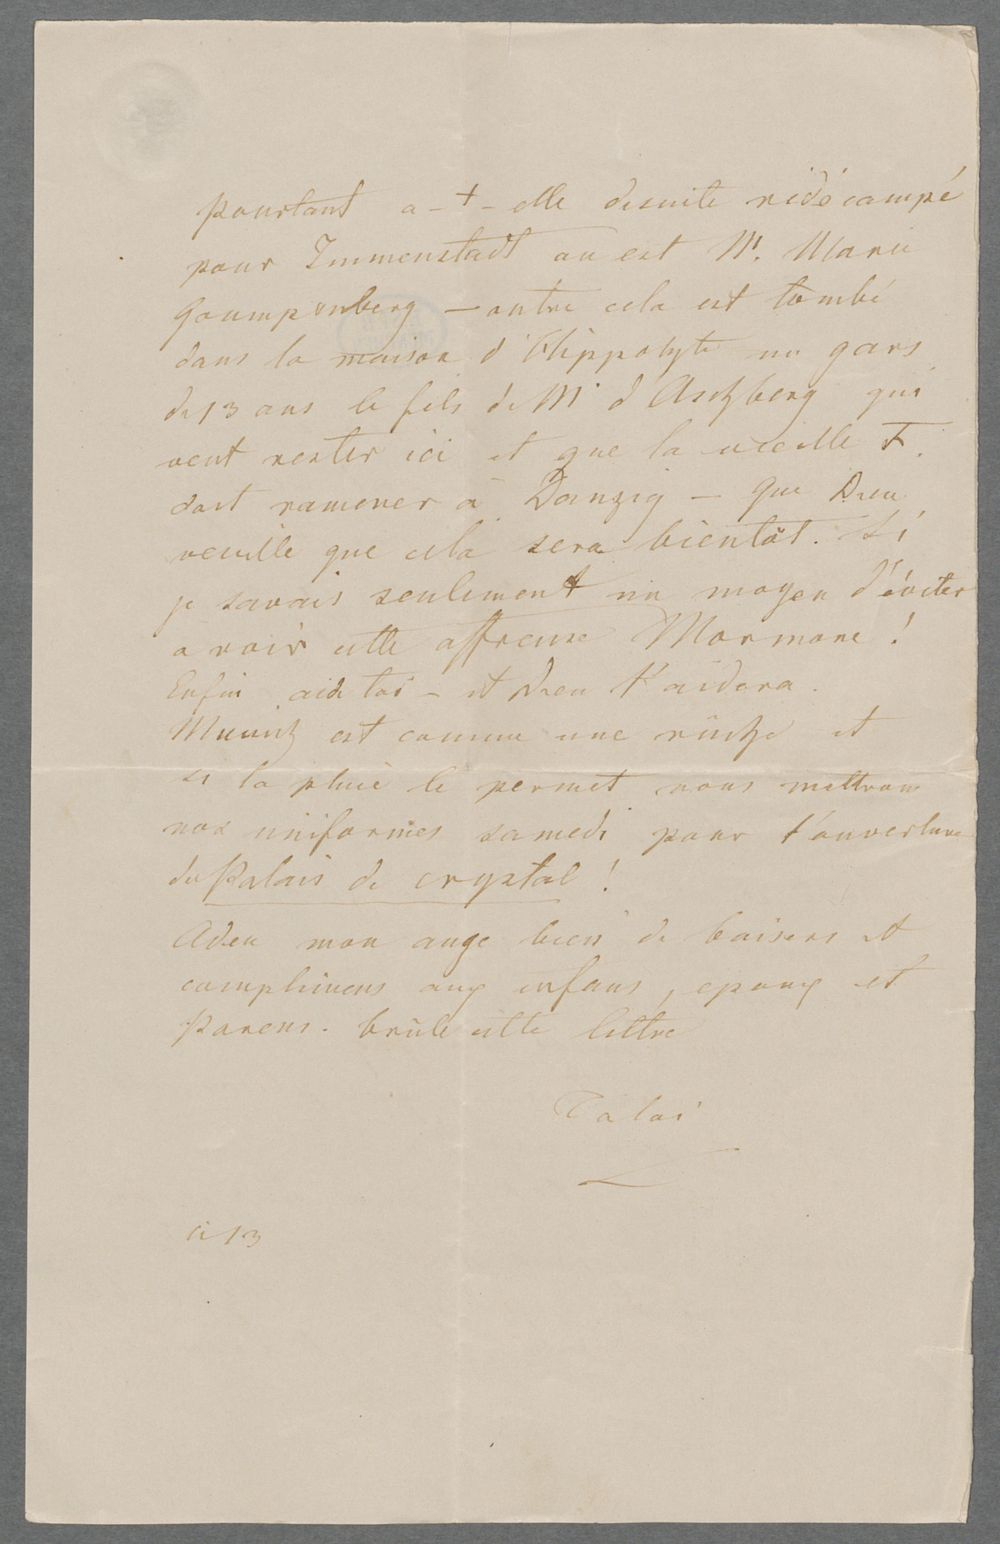 pourtant a-t-elle desuite rédécampé
pour Immenstadt ou est Mr. Marie
Goumpenberg — outre cela est tombé
dans la maison d'Hippolyte un gars
de 13 ans le fils de Mr d'Aschberg qui
veut rester ici et que la vieille F.
doit ramener à Danzig — que Dieu
veuille que cela sera bientôt. Si
je savais seulement un moyen d'éviter
a voir cette affreuse Mormone!
Enfin aide toi — et Dieu t'aidera.
Munich est comme une ruche et
si la pluie le permet nous mettrons
nos uniformes samedi pour l'ouverture
du Palais de crystal!
Adieu mon ange bien de baisers et
complimens aux enfans, epoux et
Parens. brûle cette lettre